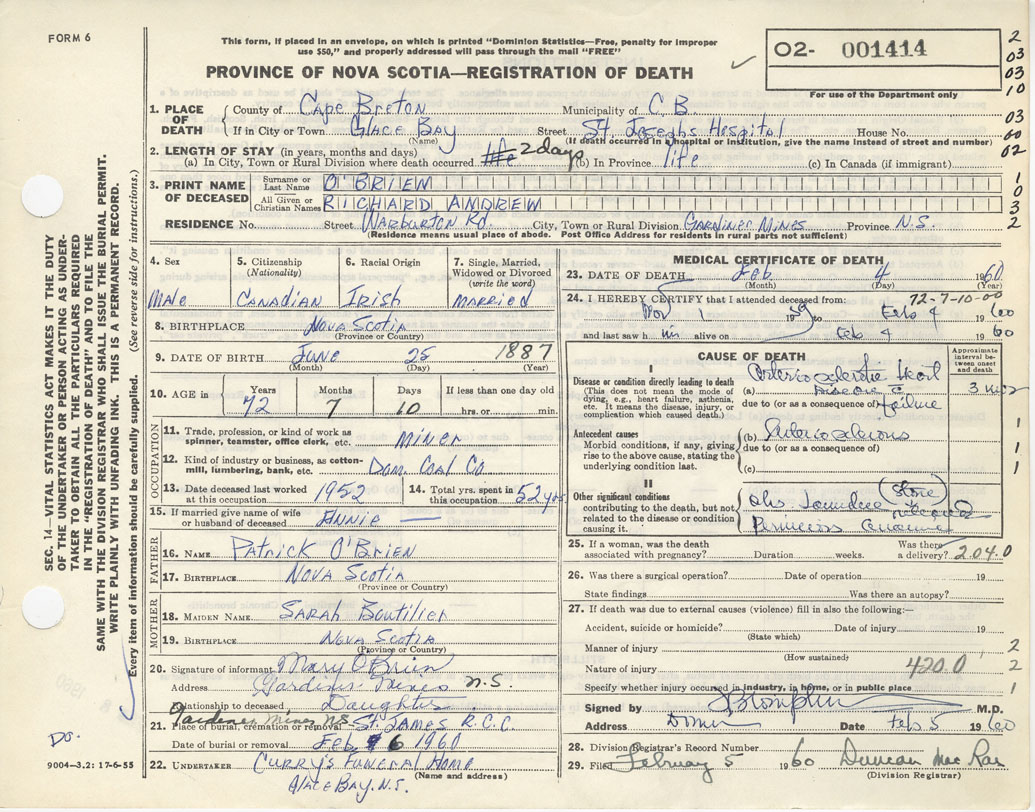 FORM 6
This form, if placed in an envelope, on which is printed "Dominion Statistics—Free, penalty for improper
use $50," and properly addressed will pass through the mail "FREE"
PROVINCE OF NOVA SCOTIA—REGISTRATION OF DEATH
O2- 001414
For use of the Department only
2
03
03
10
03
60
02
1
0
3
2
1. PLACE OF DEATH
County of Cape Breton Municipality of C.B.
If in City or Town Glace Bay Street St. Josephs Hospital House No.
(Name) (If death occurred in a hospital or institution, give the name instead of street and number)
2. LENGTH OF STAY (in years, months and days)
(a) In City, Town or Rural Division where death occurred life 2 days (b) In Province life (c) In Canada (if immigrant)
3. PRINT NAME OF DECEASED
Surname or Last Name O'BRIEN
All Given or Christian Names RICHARD ANDREW
RESIDENCE No. Street Warburton Rd. City, Town or Rural Division Gardiner Mines Province N.S.
(Residence means usual place of abode. Post Office Address for residents in rural parts not sufficient)
SEC. 14—VITAL STATISTICS ACT MAKES IT THE DUTY
OF THE UNDERTAKER OR PERSON ACTING AS UNDER-
TAKER TO OBTAIN ALL THE PARTICULARS REQUIRED
IN THE "REGISTRATION OF DEATH" AND TO FILE THE
SAME WITH THE DIVISION REGISTRAR WHO SHALL ISSUE THE BURIAL PERMIT.
WRITE PLAINLY WITH UNFADING INK. THIS IS A PERMANENT RECORD.
Every item of information should be carefully supplied. (See reverse side for instructions.)
4. Sex
Male
5. Citizenship
(Nationality)
Canadian
6. Racial Origin
Irish
7. Single, Married,
Widowed or Divorced
(write the word)
Married
8. BIRTHPLACE Nova Scotia
(Province or Country)
9. DATE OF BIRTH June 25 1887
(Month) (Day) (Year)
10. AGE in Years Months Days If less than one day old
72 7 10 hrs. or min.
OCCUPATION
11. Trade, profession, or kind of work as
spinner, teamster, office clerk, etc. Miner
12. Kind of industry or business, as cotton-
mill, lumbering, bank, etc. Dom. Coal Co.
13. Date deceased last worked
at this occupation 1952
14. Total yrs. spent in
this occupation 52 yrs
15. If married give name of wife
or husband of deceased Annie —
FATHER
16. NAME Patrick O'Brien
17. BIRTHPLACE Nova Scotia
(Province or Country)
MOTHER
18. MAIDEN NAME Sarah Boutilier
19. BIRTHPLACE Nova Scotia
(Province or Country)
20. Signature of informant Mary O'Brien
Address Gardiner Mines N.S.
Relationship to deceased Daughter
Gardener Mines NS
21. Place of burial, cremation or removal St. James R.C.C.
Date of burial or removal Feb 6 1960
22. UNDERTAKER Curry's Funeral Home
(Name and address)
Glace Bay. N.S.
DS.
9004—3.2: 17-6-55
MEDICAL CERTIFICATE OF DEATH
23. DATE OF DEATH Feb 4 1960
(Month) (Day) (Year)
72-7-10-00
24. I HEREBY CERTIFY that I attended deceased from:
Nov 1 1959 to Feb 4 1960
and last saw him alive on Feb 4 1960
CAUSE OF DEATH
Approximate
interval be-
tween onset
and death
I
Disease or condition directly leading to death
(This does not mean the mode of
dying, e.g., heart failure, asthenia,
etc. It means the disease, injury, or
complication which caused death.)
(a) Arterio sclerotic Heart
Disease c̄
due to (or as a consequence of) failure
3
Antecedent causes
Morbid conditions, if any, giving
rise to the above cause, stating the
underlying condition last.
(b) Arterio sclerosis
due to (or as a consequence of)
(c)
1
1
1
II
Other significant conditions
contributing to the death, but not
related to the disease or condition
causing it.
Obs Jaundice (stone removed)
Pernicious Anaemia
25. If a woman, was the death
associated with pregnancy? Duration weeks. Was there
a delivery? 204.0
26. Was there a surgical operation? Date of operation 19
State findings Was there an autopsy?
27. If death was due to external causes (violence) fill in also the following:—
Accident, suicide or homicide? Date of injury 19
(State which)
Manner of injury 2
(How sustained)
Nature of injury 420.0 2
Specify whether injury occurred in industry, in home, or in public place 1
Signed by M.D.
Address Date Feb 5 1960
28. Division Registrar's Record Number
29. Filed February 5 1960 Duncan Mac Rae
(Division Registrar)